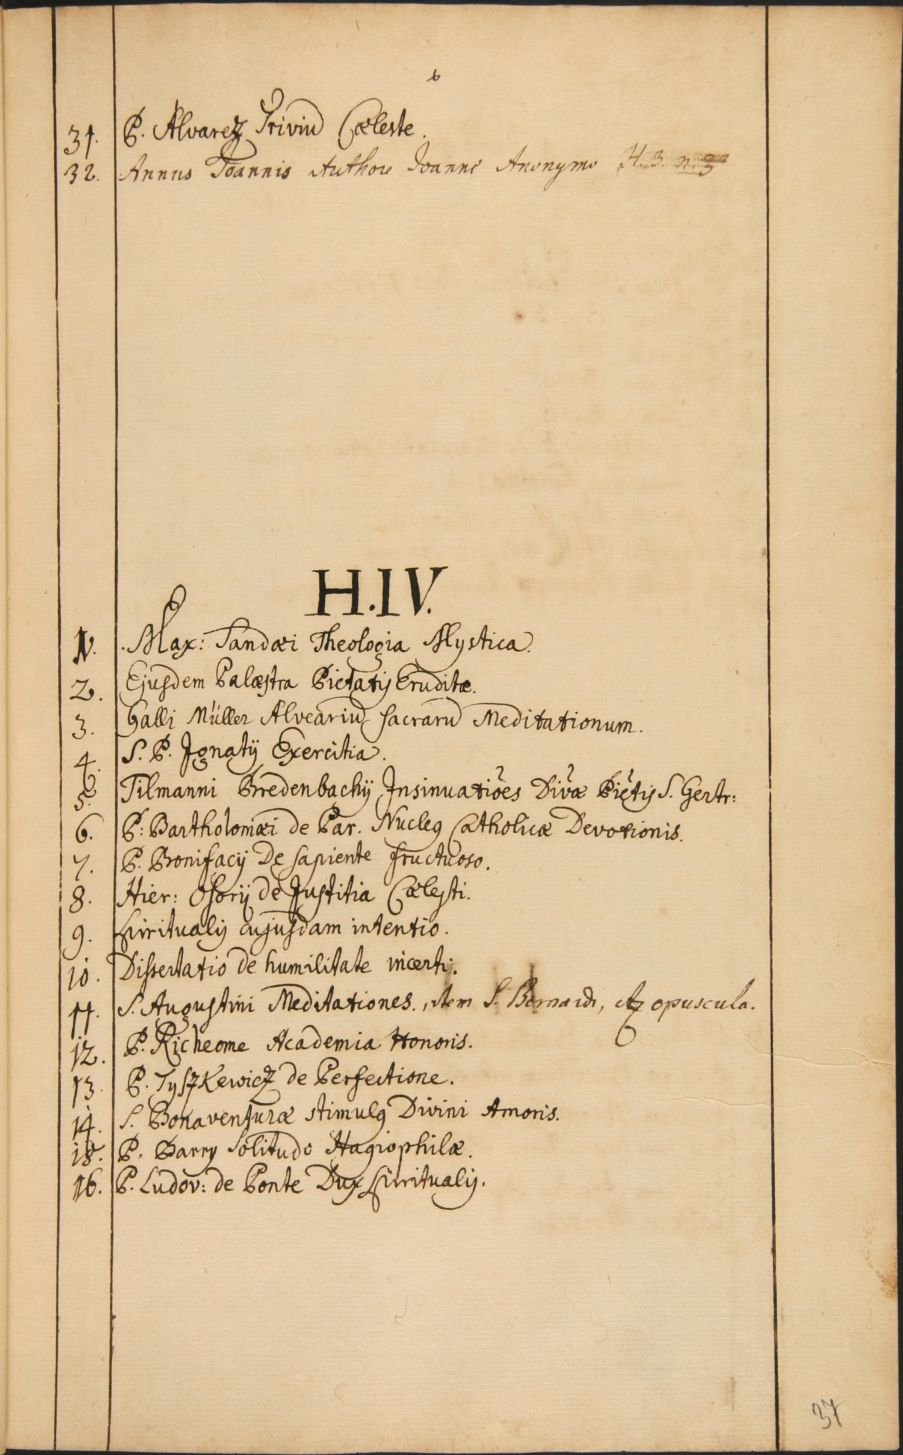 6
31. P. Alvarez Triviũ Cæleste.
32. Annus Joannis Authore Joanne Anonymo
H.IV.
1. Max: Sandæi Theologia Mystica
2. Ejusdem Palæstra Pietatis Eruditæ.
3. Galli Müller Alveariũ sacrarũ Meditationum.
4. S. P. Jgnatij Exercitia.
5. Tilmanni Bredenbachij Jnsinuatiões Divæ Pietatis S. Gertr:
6. P: Bartholomæi de Par. Nucleq Catholicæ Devotionis.
7. P. Bonifacij De sapiente fructuoso.
8. Hier: Osorij de Justitia Cælesti.
9. Spiritualis cujusdam intentio.
10. Dissertatio de humilitate incerti.
11. S. Augustini Meditationes., item S. Bernardi, & opuscula.
12. P. Richeome Academia Honoris.
13. P. Tyszkewicz de Perfectione.
14. S. Bonaventuræ stimulq Divini Amoris.
15. P. Barry Solitudo Hagiophilæ.
16. P. Ludov: de Ponte Dux Spiritualis.
37